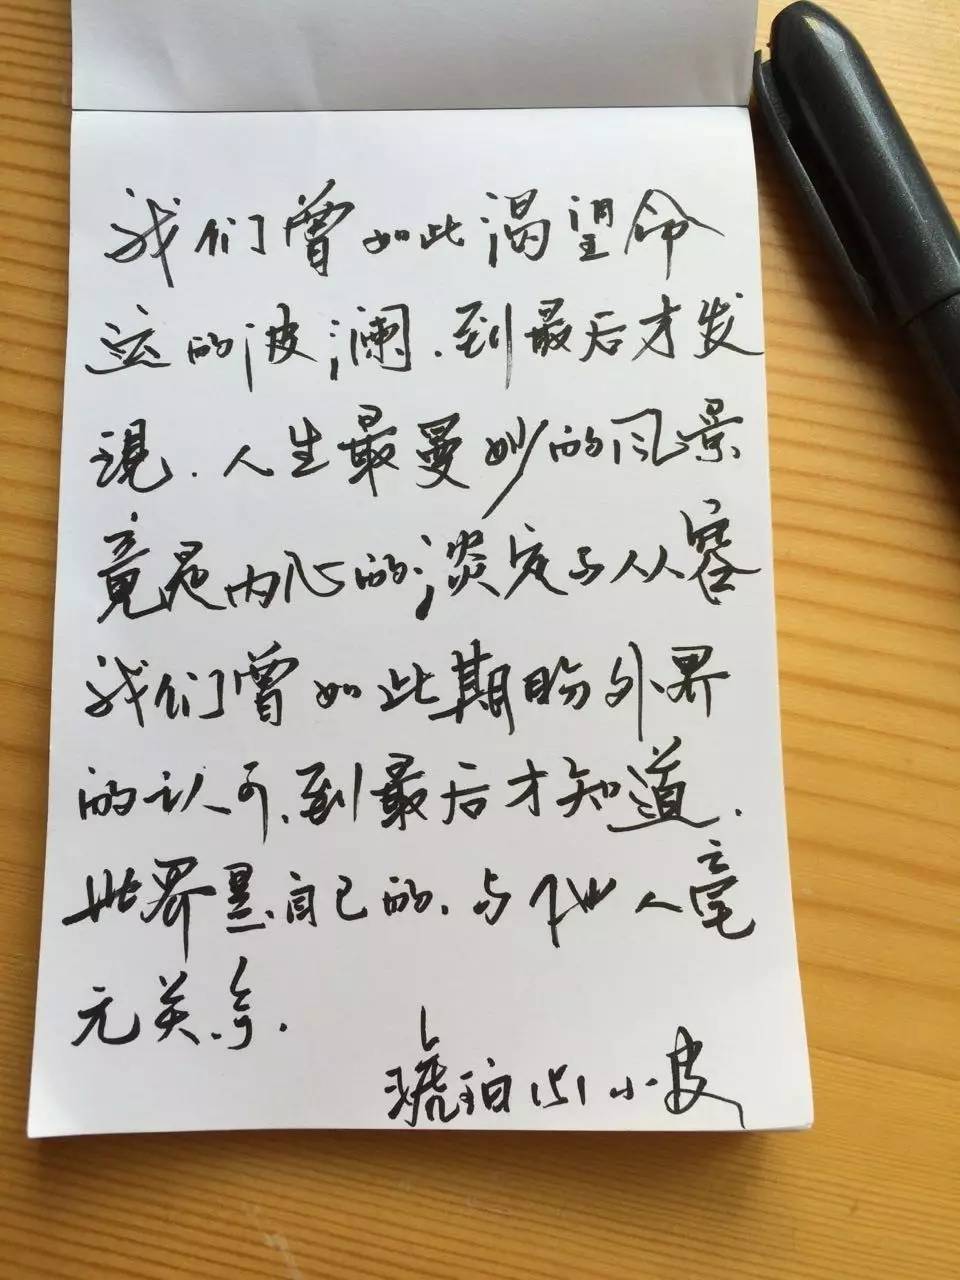 我们曾如此渴望命
运的波澜.到最后才发
现.人生最曼妙的风景
竟是内心的淡定与从容
我们曾如此期盼外界
的认可.到最后才知道.
世界是自己的.与他人毫
无关系.
琥珀 小皮